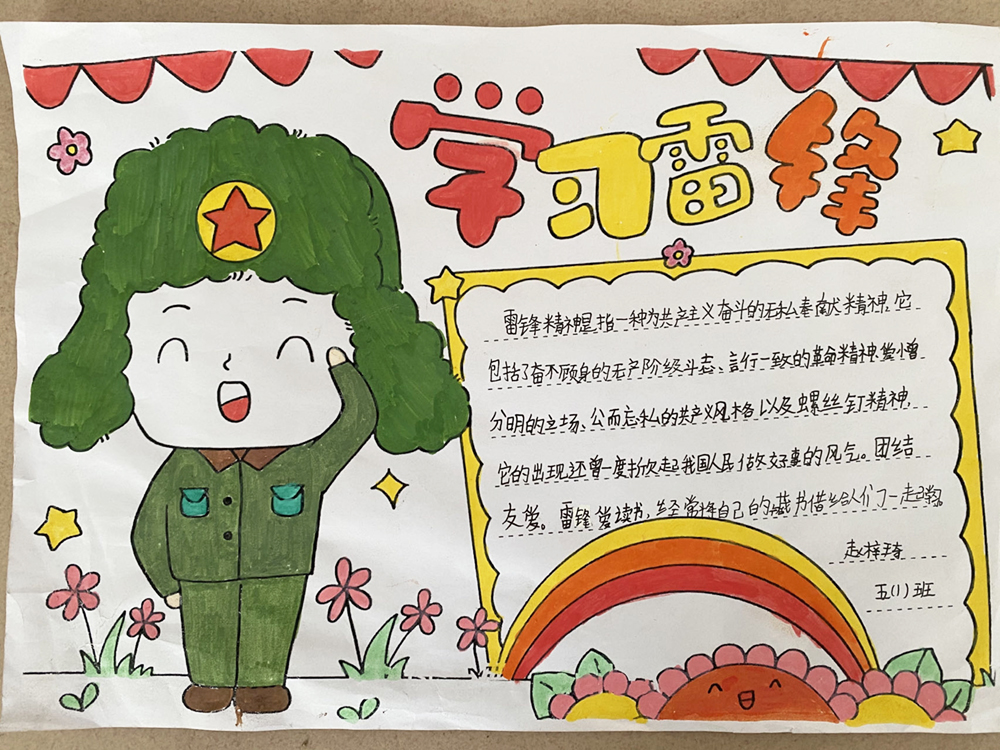 学习雷锋
雷锋精神是指一种为共产主义奋斗的无私奉献精神，它
包括了奋不顾身的无产阶级斗志、言行一致的革命精神、爱憎
分明的立场、公而忘私的共产义风格以及螺丝钉精神，
它的出现还曾一度掀起我国人民做好事的风气。团结
友爱。雷锋爱读书，经常将自己的藏书借给人们一起
赵梓琦
五(1)班